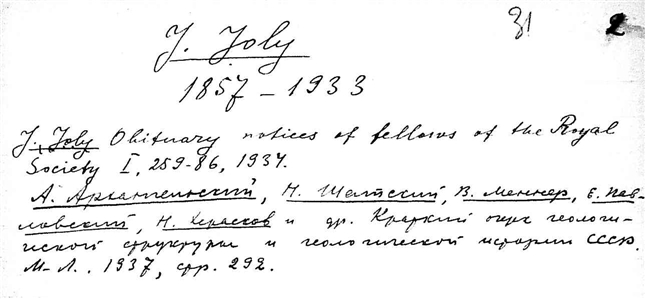 31 2
J. Joly
1857 – 1933
J. Joly Obituary notices of fellows of the Royal
Society I, 259-86, 1934.
А. Архангельский, Н. Шатский, В. Меннер, Е. Пав-
ловский, Н. Херасков и др. Краткий очерк геологи-
ческой структуры и геологической истории СССР.
М-Л., 1937, стр. 292.